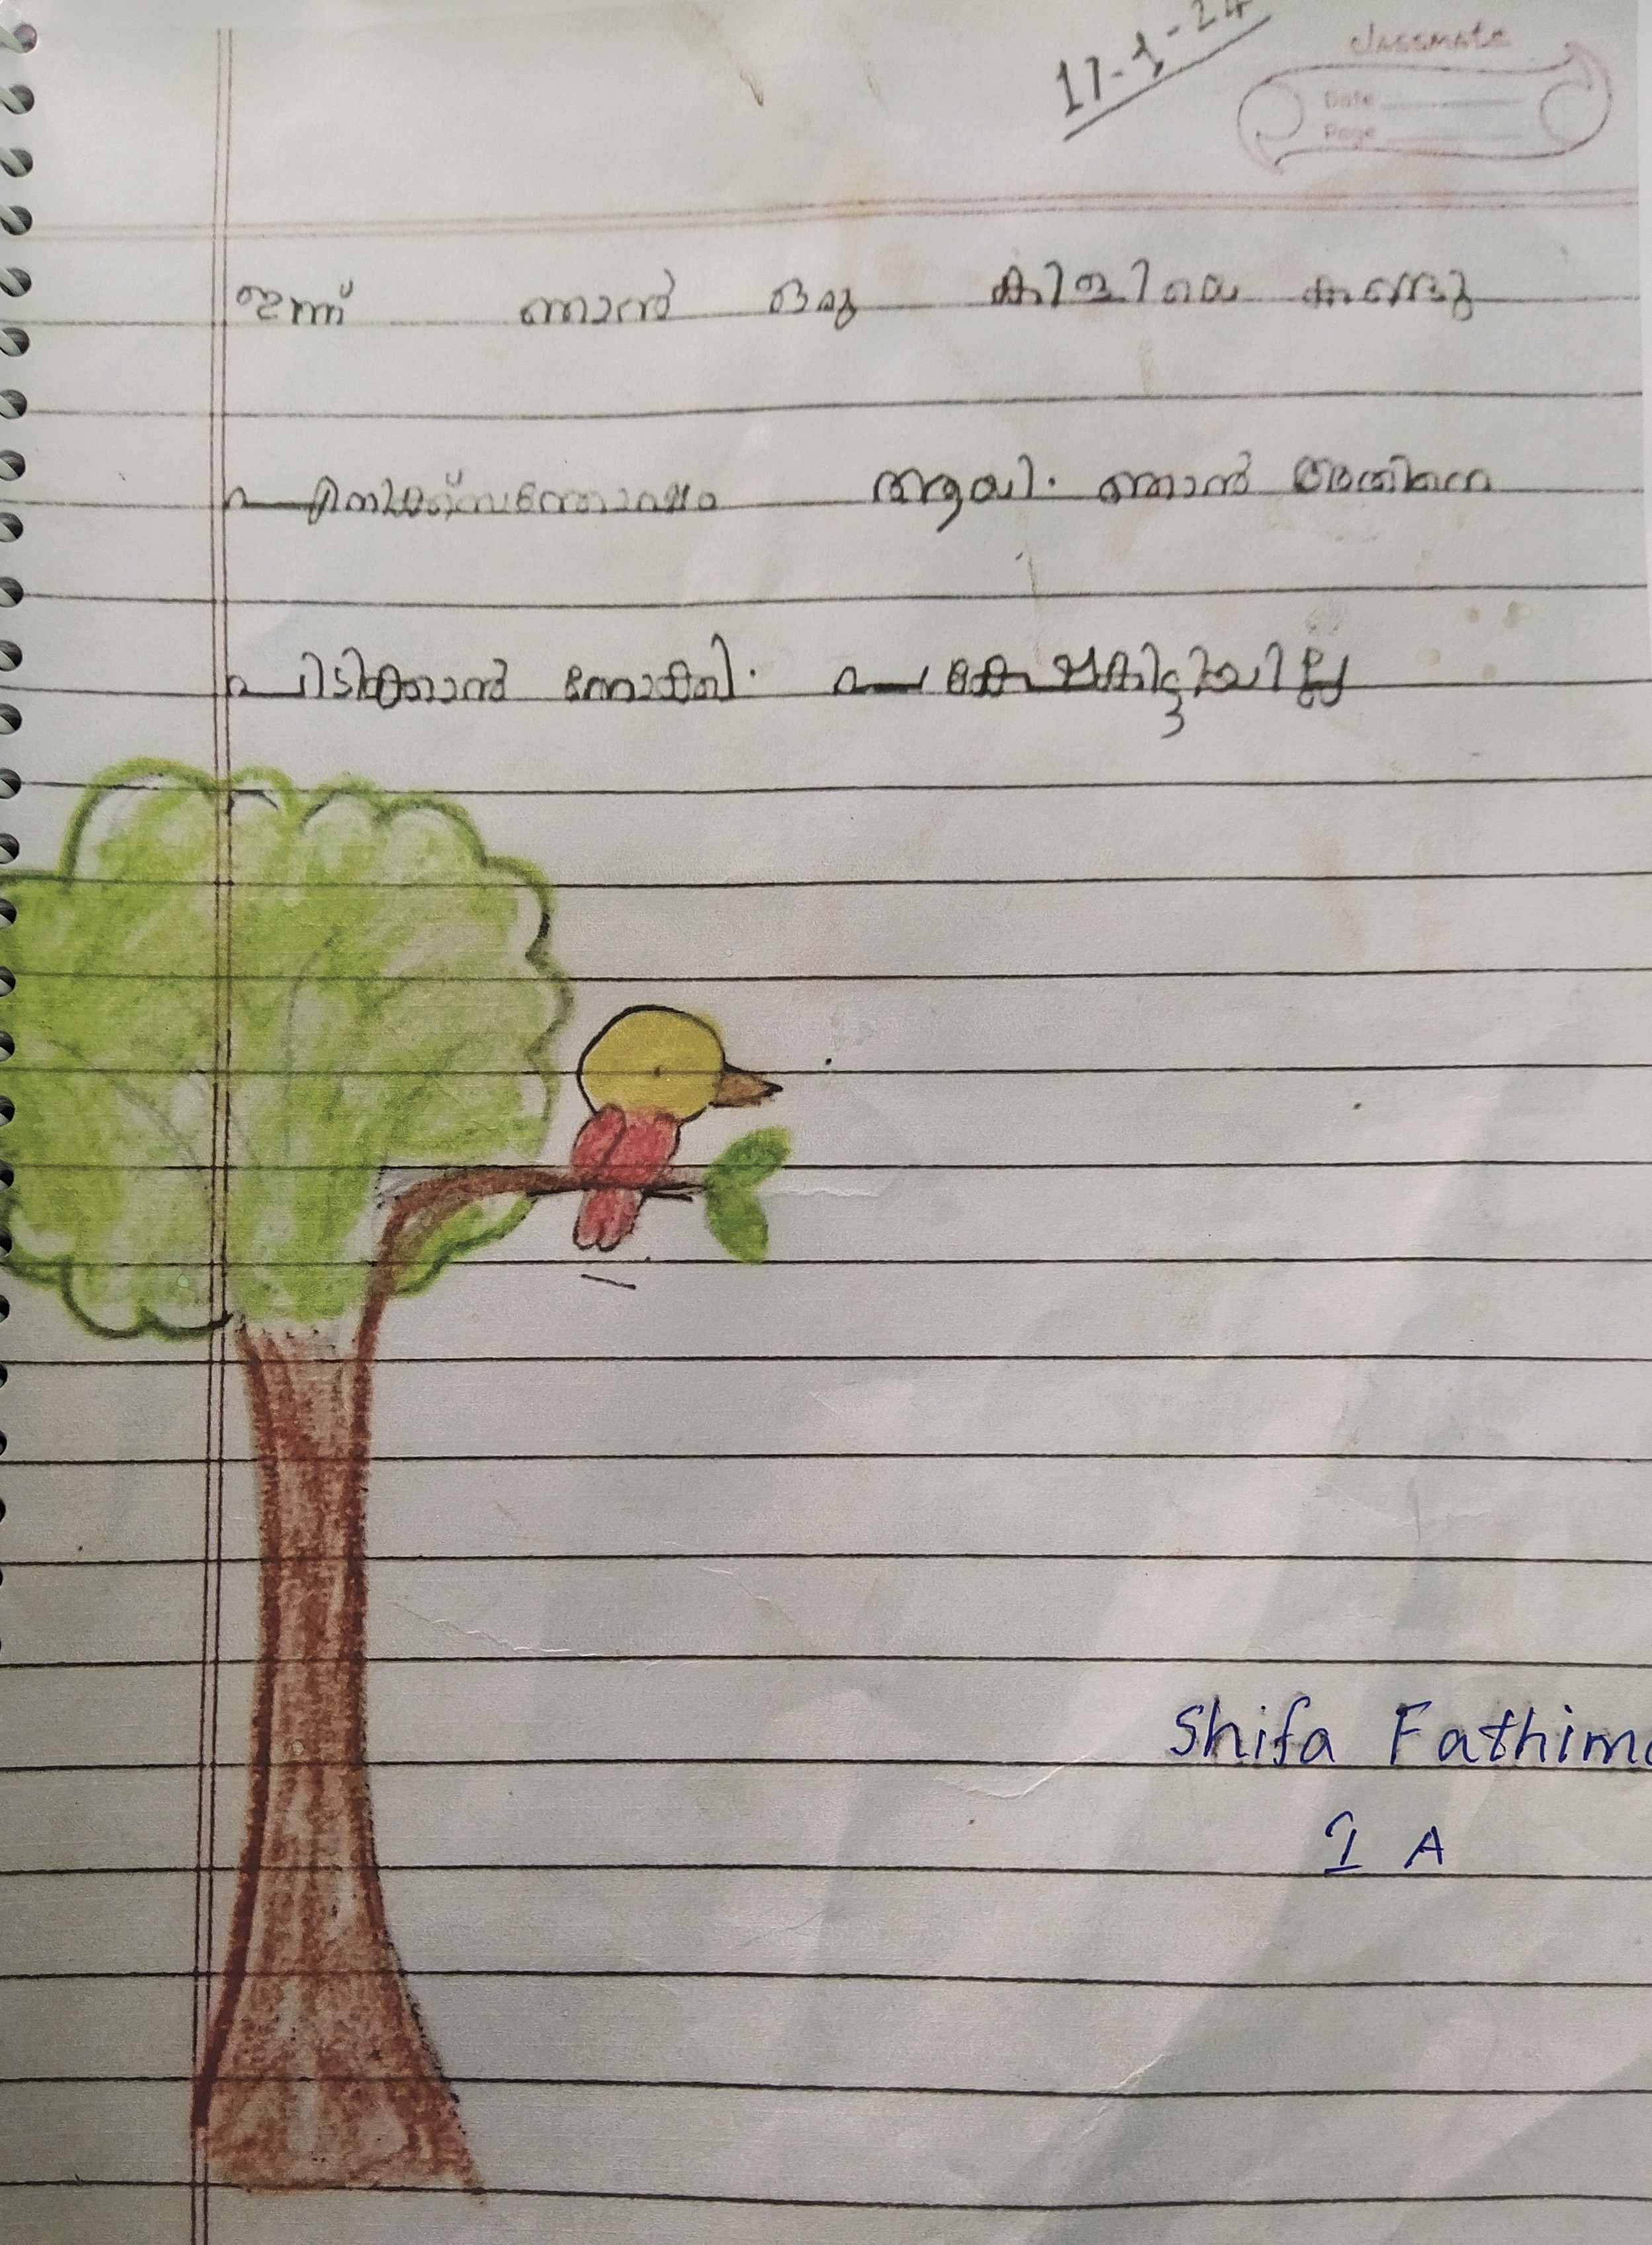 17-1-24
classmate
Date
Page
ഇന്ന് ഞാൻ ഒരു കിളിയെ കണ്ടു
സന്തോഷം ആയി. ഞാൻ അതിനെ
പിടിക്കാൻ നോക്കി. പക്ഷേകിട്ടിയില്ല
Shifa Fathima
I A